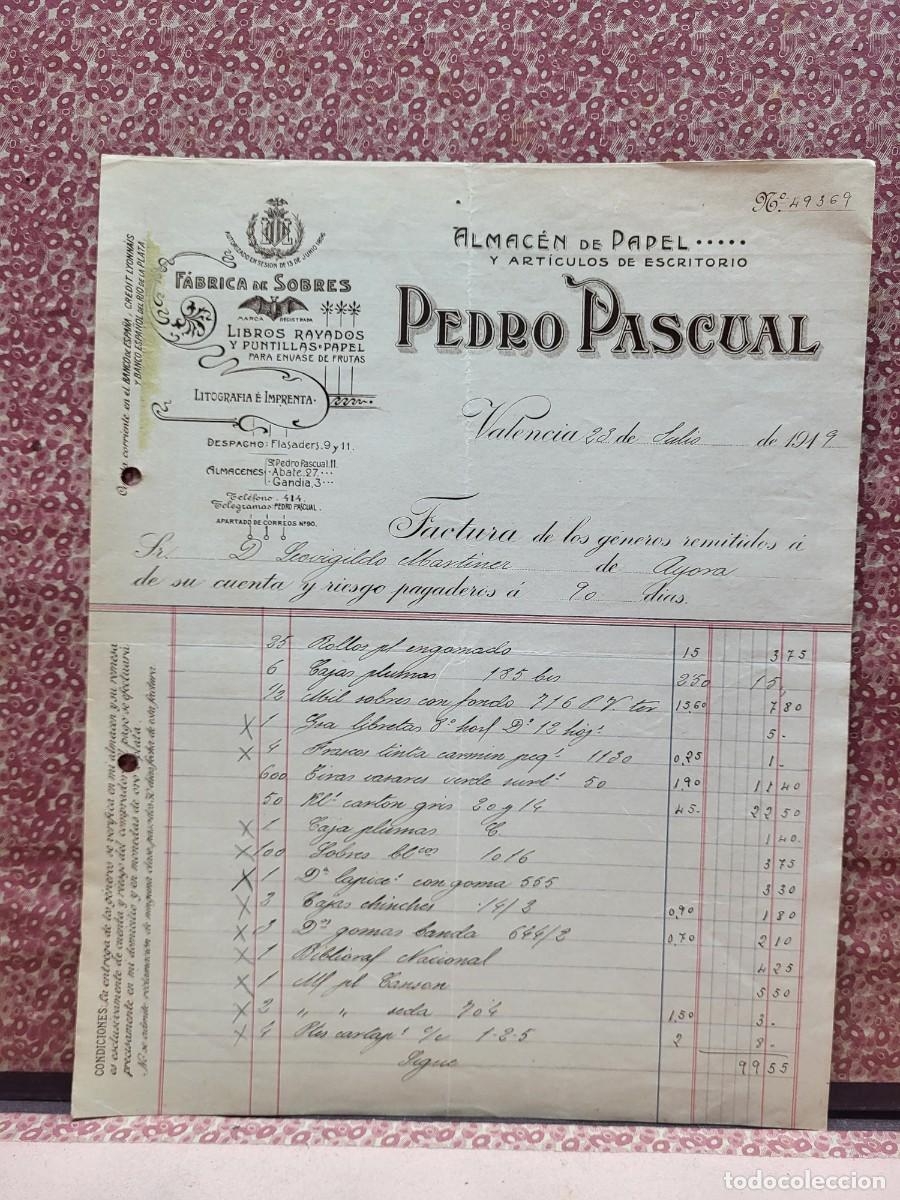 Nº 49369
AUTORIZADO EN SESION DE 13 DE JUNIO 1896
FÁBRICA DE SOBRES
MARCA REGISTRADA
LIBROS RAYADOS
Y PUNTILLAS·PAPEL
PARA ENVASE DE FRUTAS
LITOGRAFIA É IMPRENTA·
DESPACHO: Flasaders, 9 y 11.
ALMACENES
Sn Pedro Pascual, 11.
Abate, 27
Gandia, 3
Teléfono 414
Telegramas PEDRO PASCUAL
APARTADO DE CORREOS Nº 90.
ALMACÉN DE PAPEL
Y ARTÍCULOS DE ESCRITORIO
PEDRO PASCUAL
Valencia 23 de Julio de 1919
Factura de los géneros remitidos á
Sr. D Leovigildo Martinez de Ayora
de su cuenta y riesgo pagaderos á 90 dias.
corriente en el BANCO DE ESPAÑA, CREDIT LYONNAIS
Y BANCO ESPAÑOL DEL RIO DE LA PLATA
25 Rollos pl engomado 15 375
6 Cajas plumas 185 bis 250 15,
1/2 Mil sobres con fondo 716 P.V. ter 1560 780
X 1 Gra libretas 8º horl Dº 12 hojˢ 5-
X 4 Frascos tinta carmin peqˢ 1130 0,25 1-
600 Tiras vasares verde surtˢ 50 1,90 1140
50 Klˢ carton gris 20 y 14 45- 2250
X 1 Caja plumas C. 140
X 100 Sobres blcos 1016 375
X 1 Dª lapiceˢ con goma 555 330
X 2 Cajas chinches 14/2 0,90 180
X 3 Dªs gomas banda 644/2 0,70 210
X 1 Biblioraf Nacional 425
X 1 M/ pl Canson 550
X 2 " " seda 704 1,50 3-
X 4 Res cartapˢ c/c 1-2-5 2 8-
Sigue 9955
CONDICIONES. La entrega de los géneros se verifica en mi almacen y su remesa
es esclusivamente de cuenta y riesgo del comprador. El pago se efectuará
precisamente en mi domicilio y en monedas de oro ó plata.
No se admite reclamacion de ninguna clase, pasados 30 dias fecha de esta factura.
todocoleccion